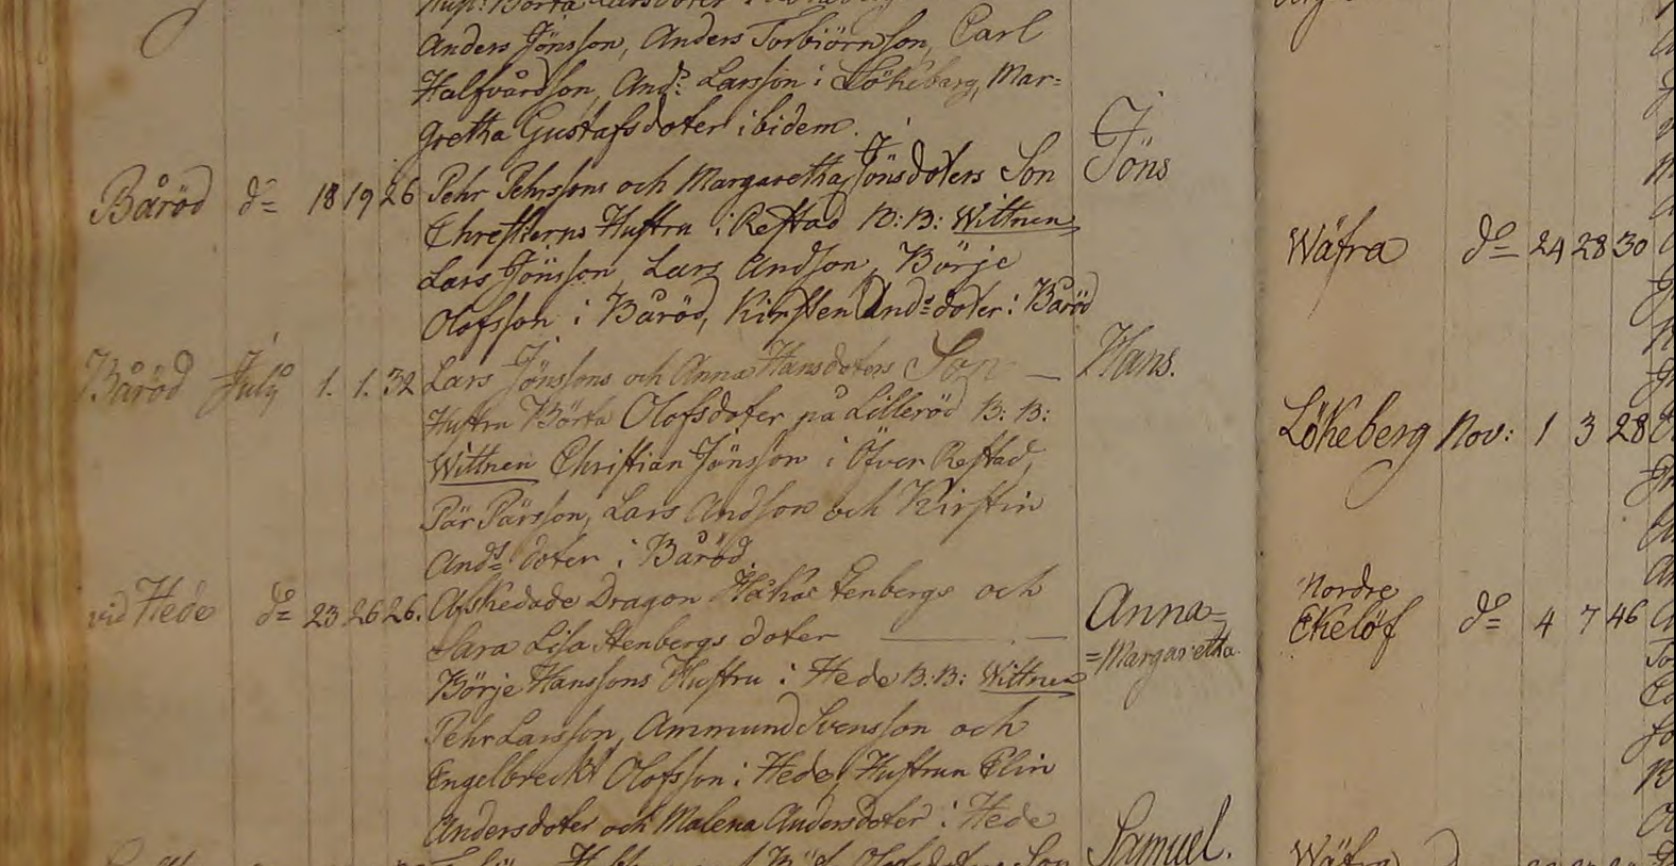 Anders Jönsson, Anders Torbiörnson, Carl
Halfvårdson, And: Larsson i Lökebärg, Mar-
gretha Gustafsdoter ibidem.
Båröd do 18 19 26 Pehr Pehrssons och Margaretha Jönsdoters Son Jöns
Chrestierns Hustru i Restad B: B: Wittnen
Lars Jönsson, Lars Andson, Börje
Olofsson i Båröd, Kirsten Ands doter i Båröd
Båröd July 1. 1. 32 Lars Jönssons och Anna Hansdoters Son — Hans.
Hustru Börta Olofsdoter på Lilleröd B: B:
Wittnen Christian Jönsson i Öfver Restad,
Pär Pärsson, Lars Andson och Kirstin
Ands doter i Båröd.
vid Hede do 23 26 26. Afskedade Dragon Stenbergs och Anna=
Sara Lisa Stenbergs doter — =Margaretha.
Börje Hanssons Hustru i Hede B: B: Wittnen
Pehr Larsson, Ammund Svensson och
Engelbreckt Olofsson i Hede, Hustrun Elin
Andersdoter och Malena Andersdoter i Hede
Samuel.
Wäfra do 24 28 30
Lökeberg Nov: 1 3 28
Nordre
Ekelöf do 4 7 46
Wäfra